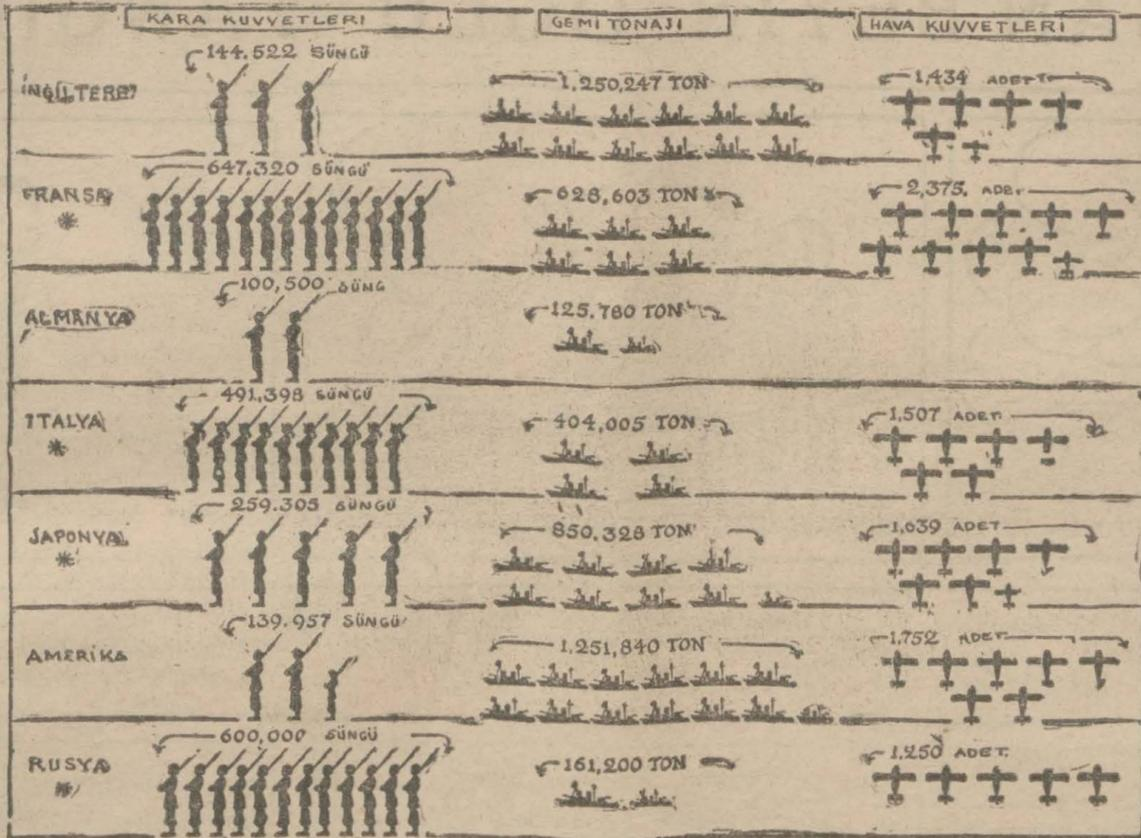 KARA KUVVETLERİ GEMİ TONAJI HAVA KUVVETLERİ
İNGİLTERE 144.522 SÜNGÜ 1,250,247 TON 1,434 ADET
FRANSA 647.320 SÜNGÜ 628,603 TON 2,375 ADET
*
ALMANYA 100,500 SÜNG 125.780 TON
İTALYA 491,398 SÜNGÜ 404,005 TON 1,507 ADET
*
JAPONYA 259.305 SÜNGÜ 850.328 TON 1,639 ADET
*
AMERİKA 139.957 SÜNGÜ 1,251,840 TON 1,752 ADET
RUSYA 600,000 SÜNGÜ 161,200 TON 1.250 ADET.
*